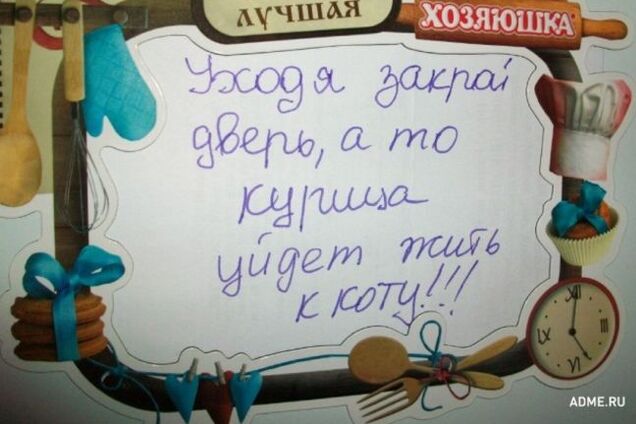 лучшая
ХОЗЯЮШКА
Уходя закрай
дверь, а то
курица
уйдет жить
к коту!!!
XII
III
VI
IX
ADME.RU